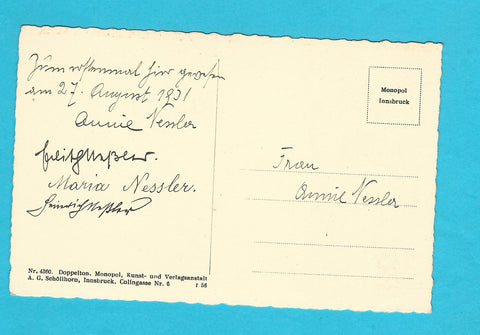 Zum erstenmal hier gewesen
am 27. August 1931
Annie Nessler
Neßler.
Maria Nessler.
Heinrich Neßler
Nr. 4360. Doppelton. Monopol, Kunst- und Verlagsanstalt
A. G. Schöllhorn, Innsbruck, Colingasse Nr. 6
t 56
Monopol
Innsbruck
Frau
Annie Nessler